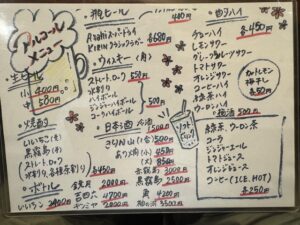 アルコールメニュー
・生ビール
小 400円
中 500円
・焼酎
いいちこ(麦)
黒霧島(芋)
(ストレート、ロック
水割り、各種茶割り) 各450
・ボトル
いいちこ 2900
2000円
吉四六 4700
キンミヤ 2000
・瓶ビール
Asahi スーパードライ
KIRIN クラシックラガー 各680円
・ウィスキー(角)
ストレート、ロック 550円
水割り
ハイボール
ジンジャーハイボール
コーラハイボール 500円
・日本酒
1500
500円
(小) 450円
(大) 850円
赤霧島 3000円
黒霧島 2500円
角 4200
3500円
480円
・酎ハイ
ウーロンハイ
レモンサワー
グレープフルーツサワー
トマトサワー
オレンジサワー
コーヒーサワー
緑茶ハイ
ウーロンハイ
カットレモン
梅干し
各50円
梅酒 500円
ソフトドリンク
緑茶、ウーロン茶
コーラ
ジンジャーエール
トマトジュース
オレンジジュース
コーヒー(ICE、HOT)
各250円